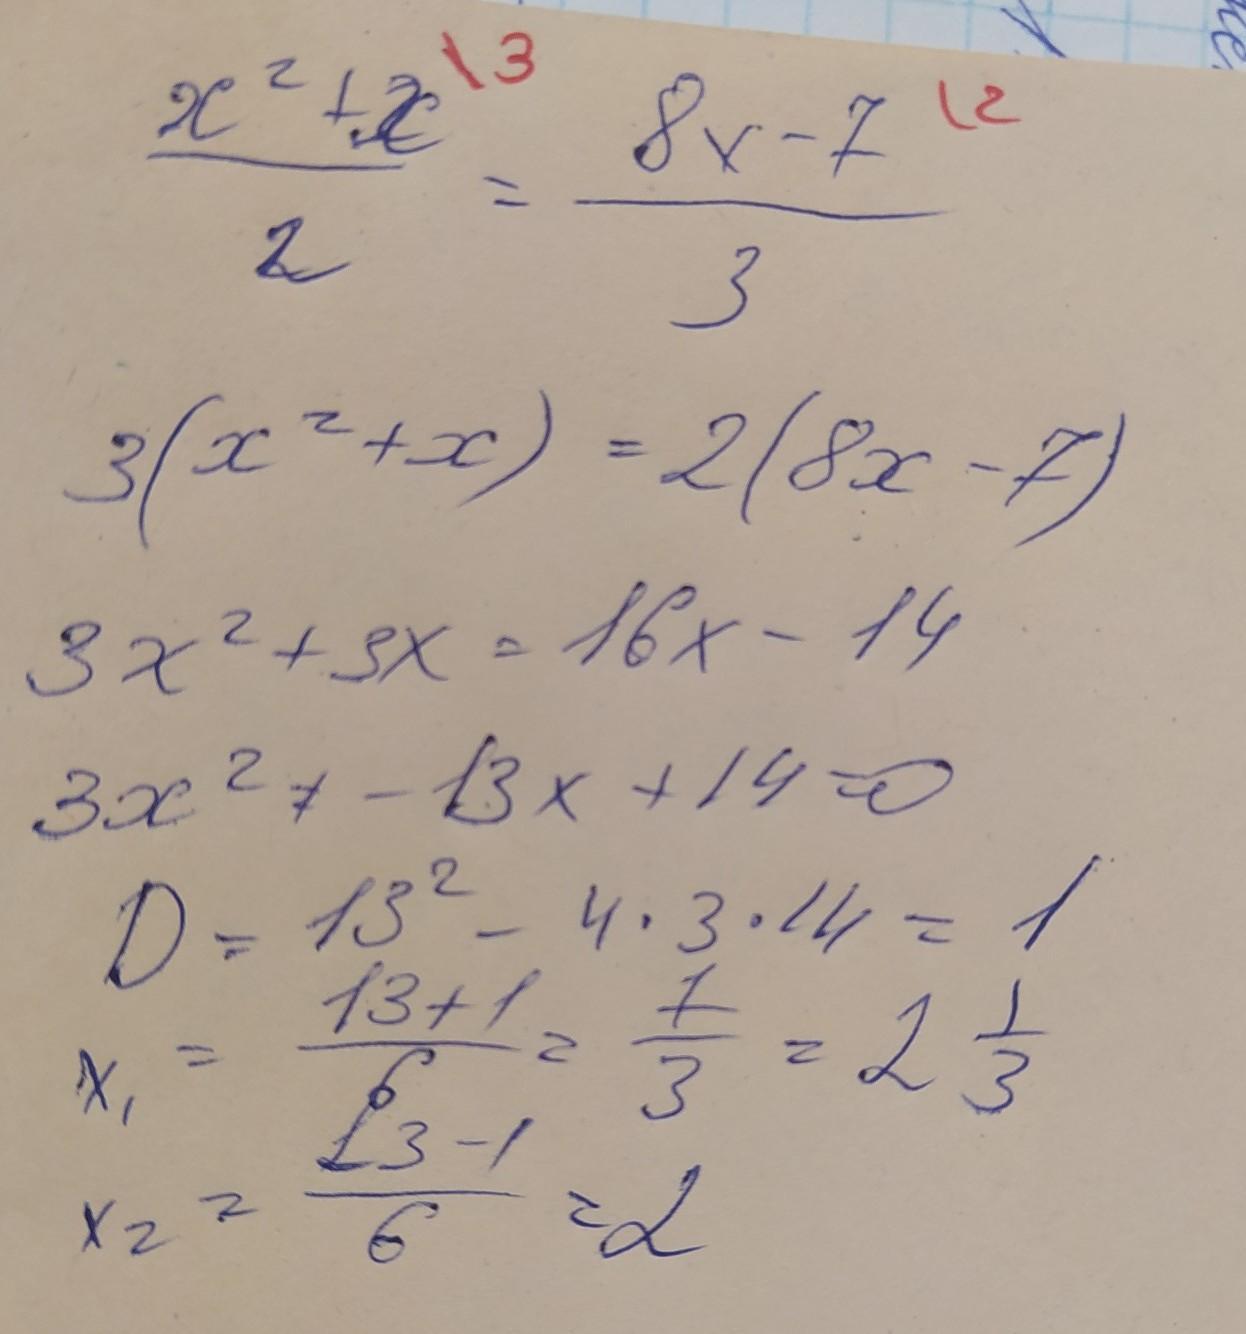 x² + x \3 / 2 = 8x - 7 \2 / 3
3(x² + x) = 2(8x - 7)
3x² + 3x = 16x - 14
3x² + - 13x + 14 = 0
D = 13² - 4 · 3 · 14 = 1
x₁ = 13 + 1 / 6 = 7 / 3 = 2 1/3
x₂ = 13 - 1 / 6 = 2